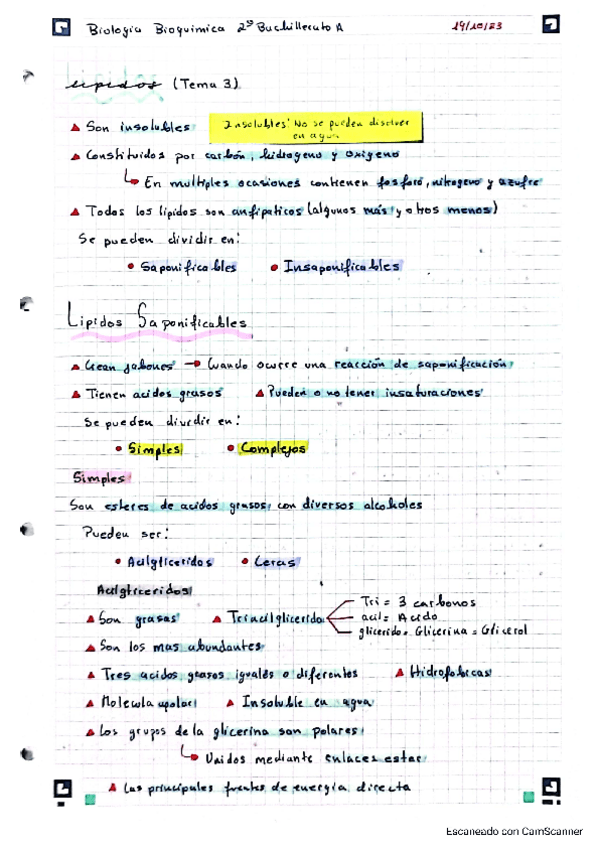 Biologia Bioquimica 2º Bachillerato A 19/10/23
Lipidos (Tema 3)
▲ Son insolubles Insolubles: No se pueden disolver
en agua
▲ Constituidos por carbón, hidrogeno y oxigeno
↳ En multiples ocasiones contienen fosforo, nitrogeno y azufre
▲ Todos los lipidos son anfipaticos (algunos más y otros menos)
Se pueden dividir en:
• Saponificables • Insaponificables
Lipidos Saponificables
▲ Crean jabones → Cuando ocurre una reacción de saponificación
▲ Tienen acidos grasos ▲ Pueden o no tener insaturaciones
Se pueden dividir en:
• Simples • Complejos
Simples
Son esteres de acidos grasos con diversos alcoholes
Pueden ser:
• Acilgliceridos • Ceras
Acilgliceridos
▲ Son grasas ▲ Triacilglicerido Tri = 3 carbonos
acil = Acido
glicerido = Glicerina = Glicerol
▲ Son los mas abundantes
▲ Tres acidos grasos iguales o diferentes ▲ Hidrofobicas
▲ Molecula apolar ▲ Insoluble en agua
▲ Los grupos de la glicerina son polares
↳ Unidos mediante enlaces ester
▲ Las principales fuentes de energia directa
Escaneado con CamScanner